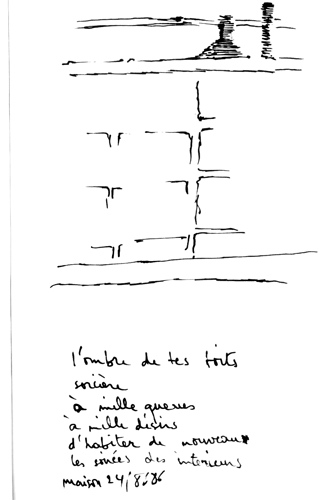 l'ombre de tes toits
sorcière
à mille queues
à mille désirs
d'habiter de nouveau
les soirées des interieurs
maison 24/8/86